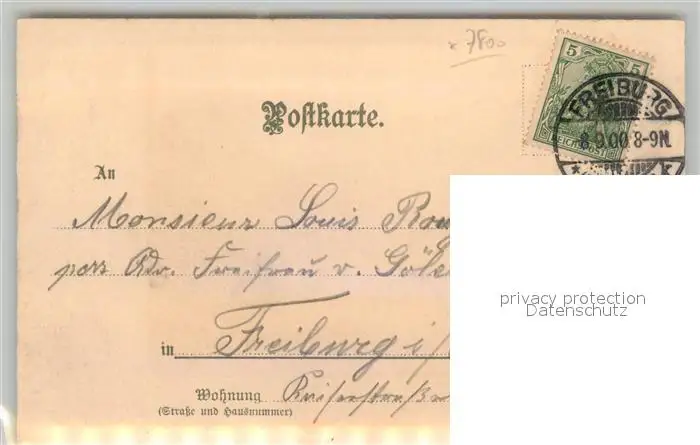 x 7800
5 5
REICHSPOST
FREIBURG
8.9.00.8-9N.
Postkarte.
An
Monsieur Louis
per Adr. Freifrau v.
in Freiburg i/
Wohnung Kaiserstraße
(Straße und Hausnummer)
privacy protection
Datenschutz